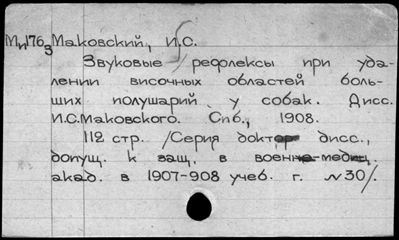 М и176 з Маковский, И.С.
Звуковые рефлексы при уда-
лении височных областей боль-
ших полушарий у собак. Дисс.
И.С.Маковского. Спб., 1908.
112 стр. /Серия доктор дисс.,
допущ. к защ. в военно-медиц.
акад. в 1907-908 учеб. г. №30/.